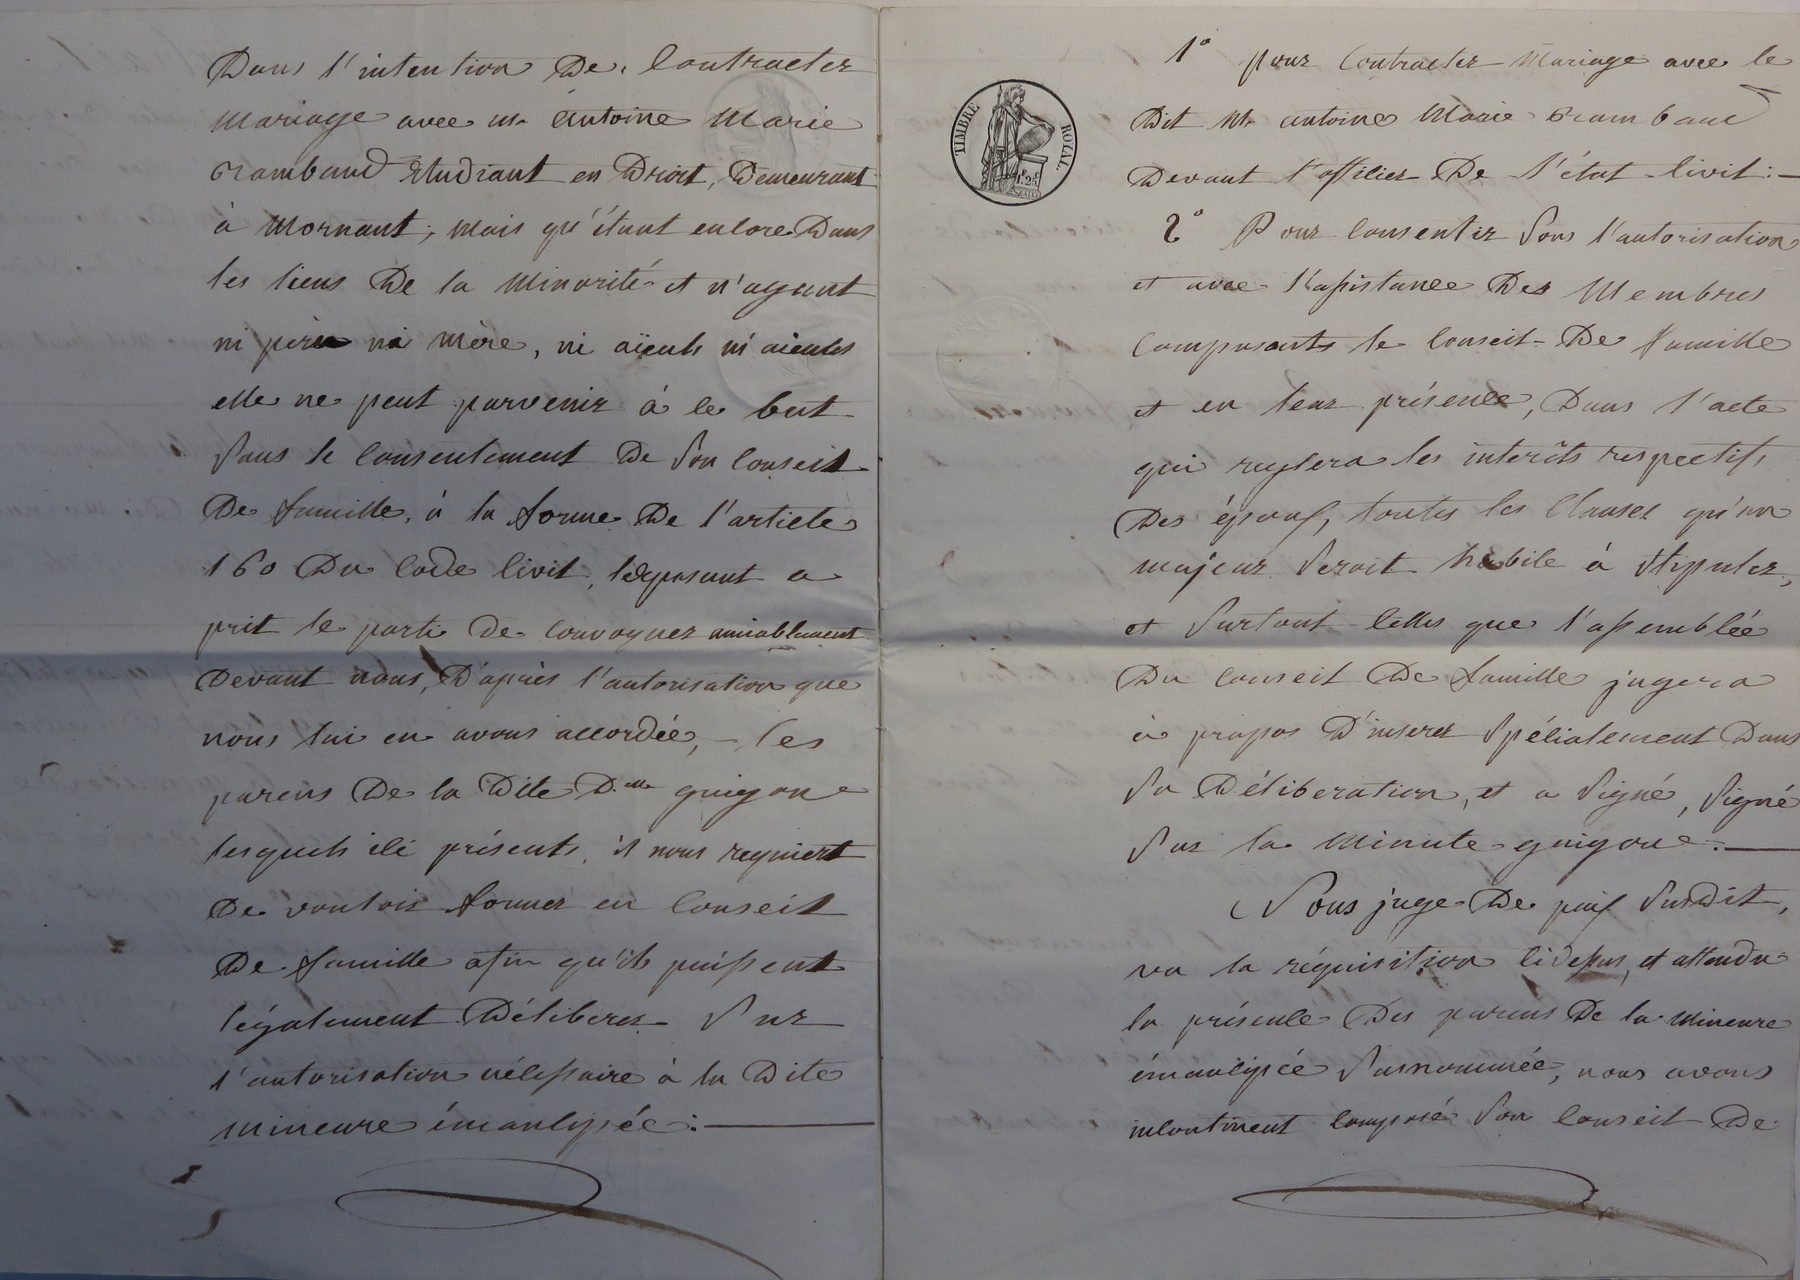 Dans l'intention De Contracter
mariage avec mr. antoine Marie
Rambaud Etudiant en Droit, Demeurant
à Mornant, mais qu'étant encore Dans
les liens De la Minorité et n'ayant
ni père ni mère, ni aïeuls ni aieules
elle ne peut parvenir à ce but
Sans le Consentement De Son Conseil
De famille, à la forme De l'article
160 Du Code Civil, lexposant a
prit le parti de convoquer amiablement
Devant nous, D'après l'autorisation que
nous lui en avons accordée, les
parens De la Dite D.elle guigone
lesquels ici présents, il nous requiert
De vouloir former en Conseil
De famille afin qu'ils puissent
légalement Déliberer Sur
l'autorisation nécessaire à la Dite
mineure émancipée :
1° pour Contracter Mariage avec le
Dit Mr antoine Marie Rambaud
Devant l'officier De l'état Civil :
2° Pour Consentir Sous l'autorisation
et avec l'assistance Des Membres
Composants le Conseil De famille
et en leur présence, Dans l'acte
qui reglera les interêts respectifs
Des époux, toutes les Clauses qu'un
majeur Seroit habile à Stipuler,
et Surtout Celles que l'assemblée
Du Conseil De famille jugera
à propos D'inserer Spécialement Dans
Sa Déliberation, et a Signé, Signé
Sur la Minute guigone.
Nous juge De paix Susdit,
vu la réquisition Cidessus, et attendu
la présence Des parens De la Mineure
émancipée Surnommée, nous avons
incontinent Composé Son Conseil De
TIMBRE ROYAL.